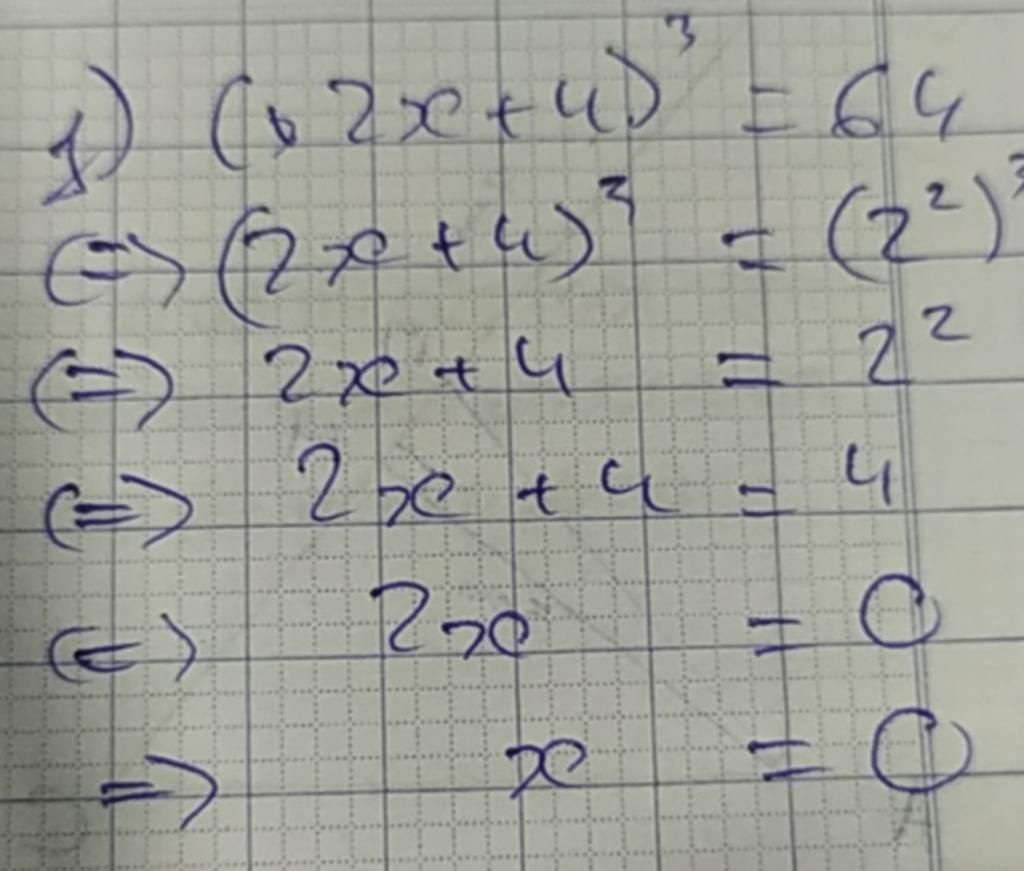 f) (2x+4)³ = 64
(=) (2x+4)³ = (2²)³
(=) 2x+4 = 2²
(=) 2x+4 = 4
(=) 2x = 0
=) x = 0